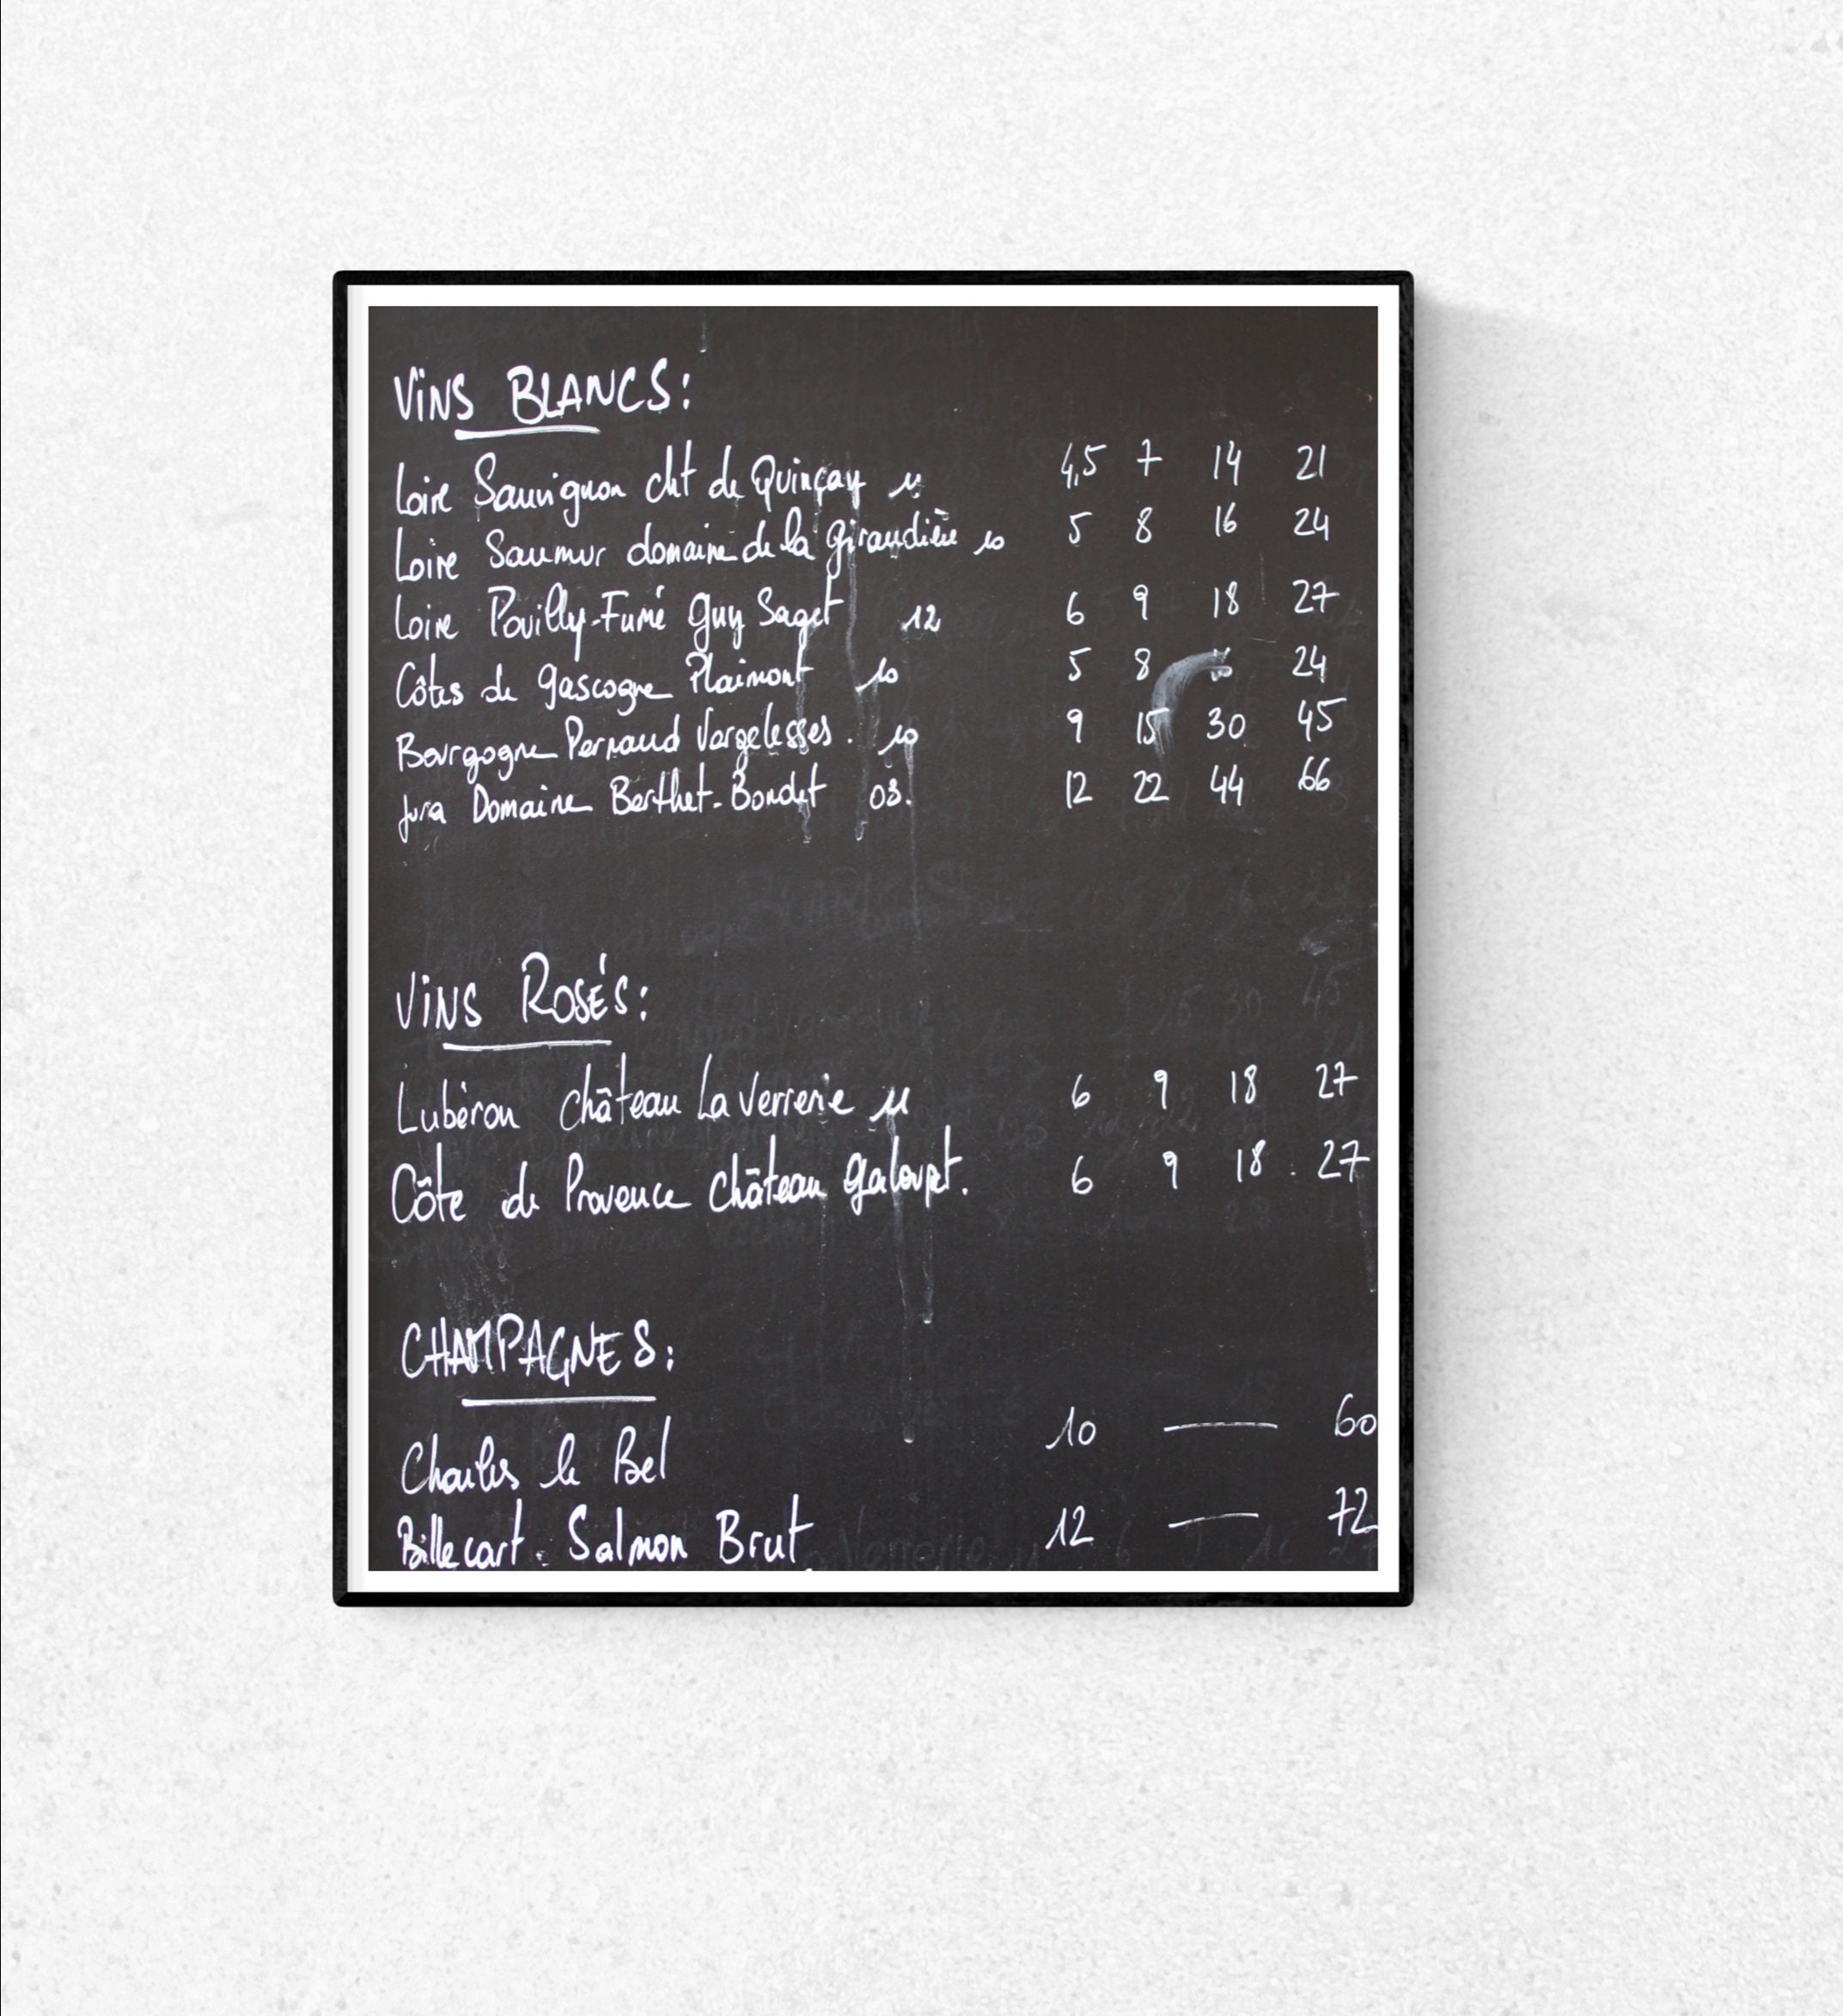 ViNS BLANCS:
Loire Sauvignon cht de Quinçay 11 4,5 7 14 21
Loire Saumur domaine de la Giraudière 10 5 8 16 24
Loire Pouilly-Fumé Guy Saget 12 6 9 18 27
Côtes de Gascogne Plaimont 10 5 8 24
Bourgogne Pernaud Vergelesses. 10 9 15 30 45
Jura Domaine Berthet-Bondet 03. 12 22 44 66
ViNS ROSÉS:
Lubéron château La Verrerie 11 6 9 18 27
Côte de Provence château Galoupet. 6 9 18 . 27
CHAMPAGNES:
Charles le Bel 10 — 60
Billecart-Salmon Brut 12 — 72